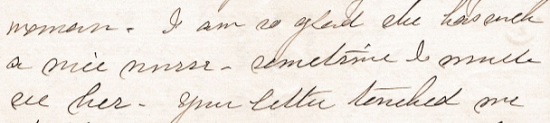 woman - I am so glad she has such
a nice nurse - sometime I must
see her - Your letter touched me